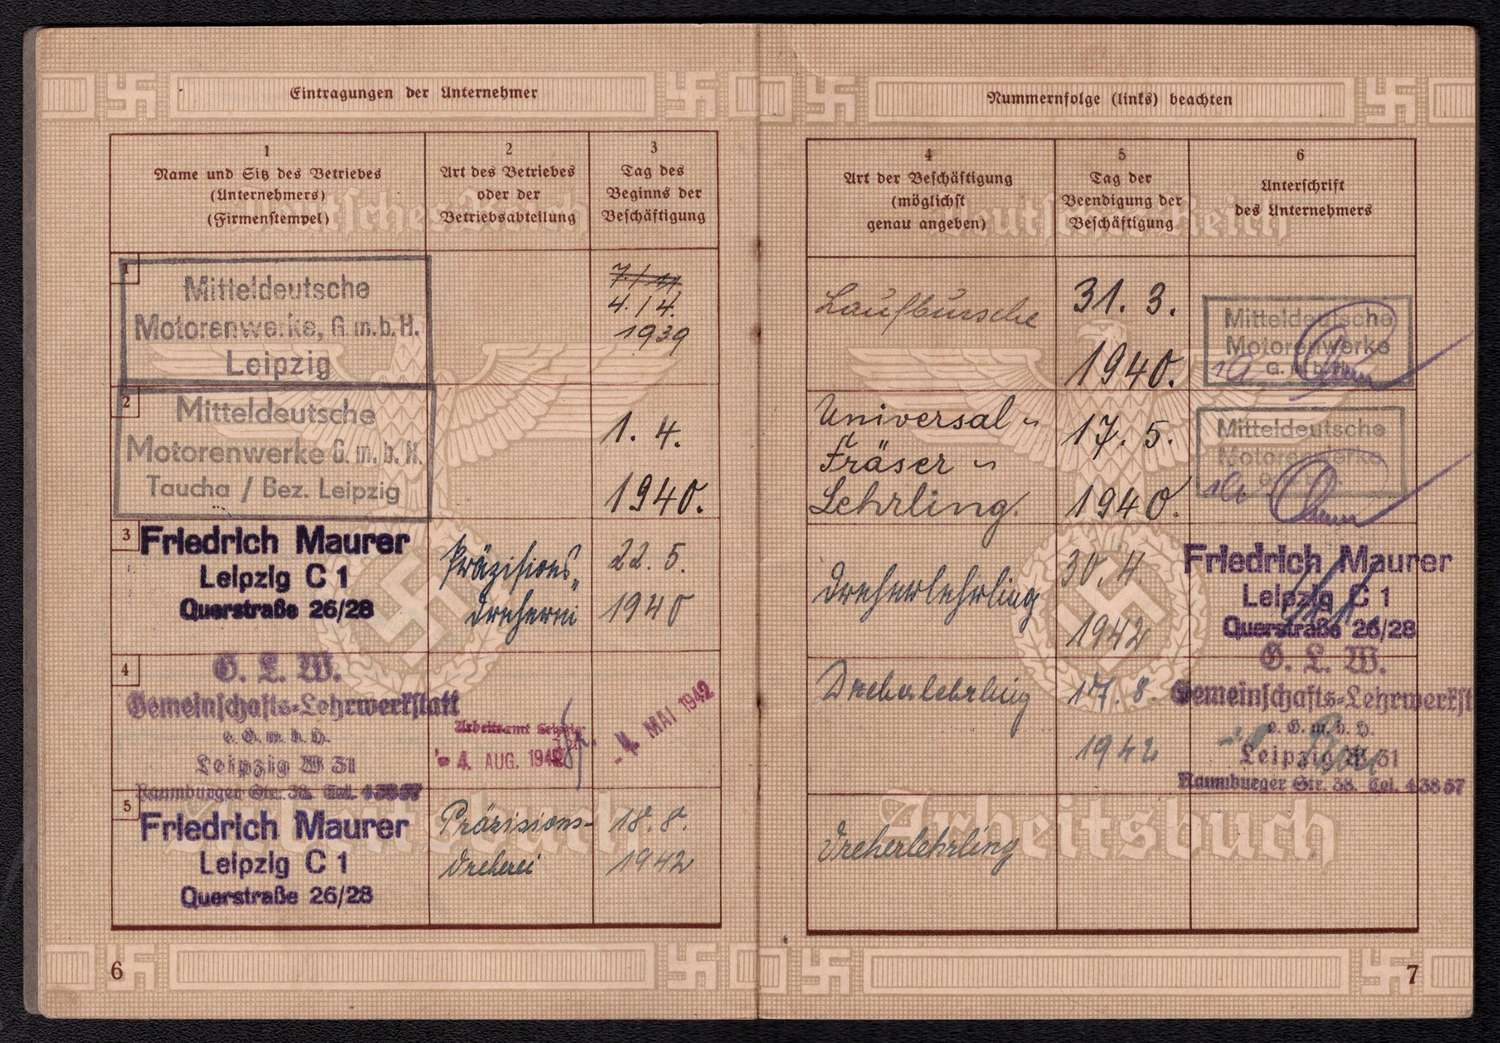 Eintragungen der Unternehmer
1
Name und Sitz des Betriebes
(Unternehmers)
(Firmenstempel)
2
Art des Betriebes
oder der
Betriebsabteilung
3
Tag des
Beginns der
Beschäftigung
1
Mitteldeutsche
Motorenwerke, G.m.b.H.
Leipzig
4./4.
1939
2
Mitteldeutsche
Motorenwerke G.m.b.H.
Taucha / Bez. Leipzig
1. 4.
1940.
3
Friedrich Maurer
Leipzig C 1
Querstraße 26/28
Präzisions-
dreherei
22. 5.
1940
4
G. L. W.
Gemeinschafts-Lehrwerkstatt
e. G. m. b. H.
Leipzig W 31
Naumburger Str. 38. Tel. 43857
Arbeitsamt
- 4. AUG. 1942
- 4. MAI 1942
5
Friedrich Maurer
Leipzig C 1
Querstraße 26/28
Präzisions-
dreherei
18. 8.
1942
6
Nummernfolge (links) beachten
4
Art der Beschäftigung
(möglichst
genau angeben)
5
Tag der
Beendigung der
Beschäftigung
6
Unterschrift
des Unternehmers
Laufbursche
31. 3.
1940.
Mitteldeutsche
Motorenwerke
G.m.b.H.
Universal-
Fräser-
Lehrling.
17. 5.
1940.
Mitteldeutsche
Motorenwerke
Dreherlehrling
30. 4.
1942
Friedrich Maurer
Leipzig C 1
Querstraße 26/28
Dreherlehrling
17. 8.
1942
G. L. W.
Gemeinschafts-Lehrwerkst
e. G. m. b. H.
Leipzig W 31
Naumburger Str. 38. Tel. 43857
Dreherlehrling
7
Deutsches Reich
Arbeitsbuch
Deutsches Reich
Arbeitsbuch